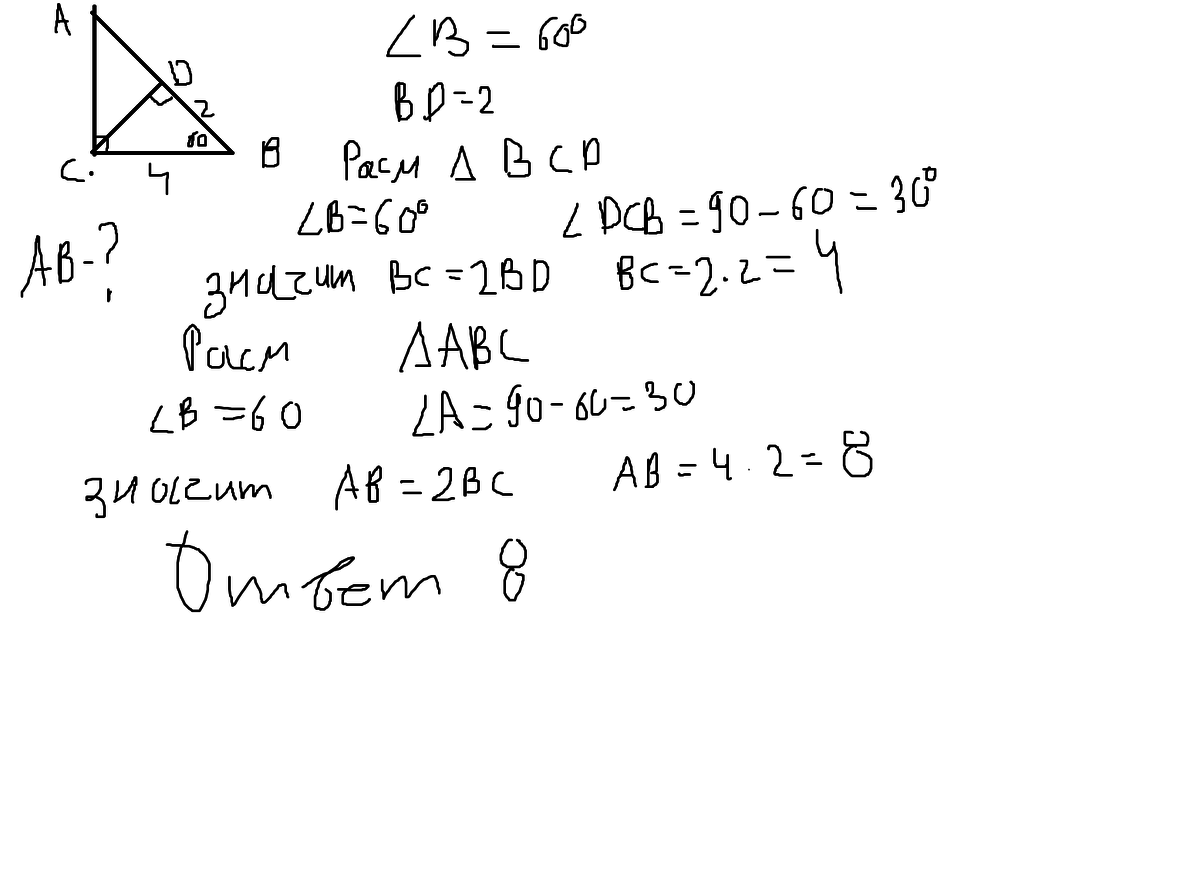 A
D
2
60
C.
4
B
AB-?
∠B = 60°
BD=2
Расм Δ BCD
∠B=60° ∠DCB = 90 - 60 = 30°
значит BC = 2BD BC = 2·2 = 4
Расм ΔABC
∠B = 60 ∠A = 90 - 60 = 30
значит AB = 2BC AB = 4 · 2 = 8
Ответ 8